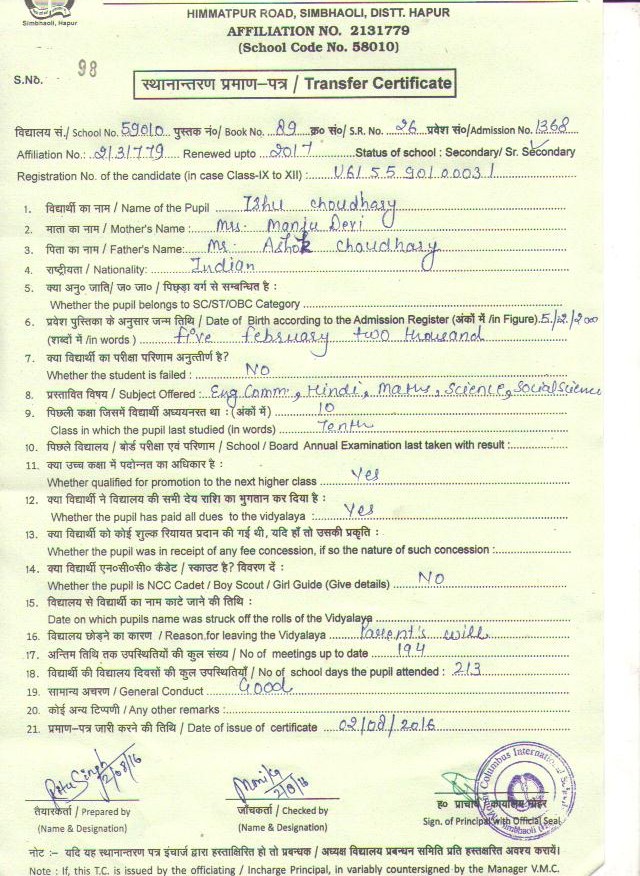 Simbhaoli, Hapur
HIMMATPUR ROAD, SIMBHAOLI, DISTT. HAPUR
AFFILIATION NO. 2131779
(School Code No. 58010)
S.No. 98
स्थानान्तरण प्रमाण–पत्र / Transfer Certificate
विद्यालय सं./ School No. 59010 पुस्तक नं०/ Book No. 89 क्र० सं०/ S.R. No. 26 प्रवेश सं०/Admission No. 1368
Affiliation No.: 2131779 Renewed upto 2017 Status of school : Secondary/ Sr. Secondary
Registration No. of the candidate (in case Class-IX to XII) : U615590100031
1. विद्यार्थी का नाम / Name of the Pupil Ishu choudhary
2. माता का नाम / Mother's Name : Mrs. Manju Devi
3. पिता का नाम / Father's Name: Mr. Ashok choudhary
4. राष्ट्रीयता / Nationality: Indian
5. क्या अनु० जाति/ ज० जा० / पिछड़ा वर्ग से सम्बन्धित है :
Whether the pupil belongs to SC/ST/OBC Category
6. प्रवेश पुस्तिका के अनुसार जन्म तिथि / Date of Birth according to the Admission Register (अंकों में /in Figure). 5/2/2000
(शब्दों में /in words ) five february two thousand
7. क्या विद्यार्थी का परीक्षा परिणाम अनुत्तीर्ण है?
Whether the student is failed : No
8. प्रस्तावित विषय / Subject Offered : Eng Comm, Hindi, Maths, Science, Social Science
9. पिछली कक्षा जिसमें विद्यार्थी अध्ययनरत था : (अंकों में) 10
Class in which the pupil last studied (in words) Tenth
10. पिछले विद्यालय / बोर्ड परीक्षा एवं परिणाम / School / Board Annual Examination last taken with result :
11. क्या उच्च कक्षा में पदोन्नत का अधिकार है :
Whether qualified for promotion to the next higher class Yes
12. क्या विद्यार्थी ने विद्यालय की सभी देय राशि का भुगतान कर दिया है :
Whether the pupil has paid all dues to the vidyalaya : Yes
13. क्या विद्यार्थी को कोई शुल्क रियायत प्रदान की गई थी, यदि हाँ तो उसकी प्रकृति :
Whether the pupil was in receipt of any fee concession, if so the nature of such concession :
14. क्या विद्यार्थी एन०सी०सी० कैडेट / स्काउट है? विवरण दें :
Whether the pupil is NCC Cadet / Boy Scout / Girl Guide (Give details) No
15. विद्यालय से विद्यार्थी का नाम काटे जाने की तिथि :
Date on which pupils name was struck off the rolls of the Vidyalaya
16. विद्यालय छोड़ने का कारण / Reason for leaving the Vidyalaya Parent's will
17. अन्तिम तिथि तक उपस्थितियों की कुल संख्या / No of meetings up to date 194
18. विद्यार्थी की विद्यालय दिवसों की कुल उपस्थितियाँ / No of school days the pupil attended : 213
19. सामान्य अचरण / General Conduct Good
20. कोई अन्य टिप्पणी / Any other remarks :
21. प्रमाण–पत्र जारी करने की तिथि / Date of issue of certificate 02/08/2016
Ritu Singh 2/08/16 Monika 2/8/16 Columbus International School
तैयारकर्ता / Prepared by जाँचकर्ता / Checked by ह० प्राचार्य कार्यालय मोहर
(Name & Designation) (Name & Designation) Sign. of Principal with Official Seal
Simbhaoli
नोट :– यदि यह स्थानान्तरण पत्र इंचार्ज द्वारा हस्ताक्षिरित हो तो प्रबन्धक / अध्यक्ष विद्यालय प्रबन्धन समिति प्रति हस्तक्षरित अवश्य करायें।
Note : If, this T.C. is issued by the officiating / Incharge Principal, in variably countersigned by the Manager V.M.C.